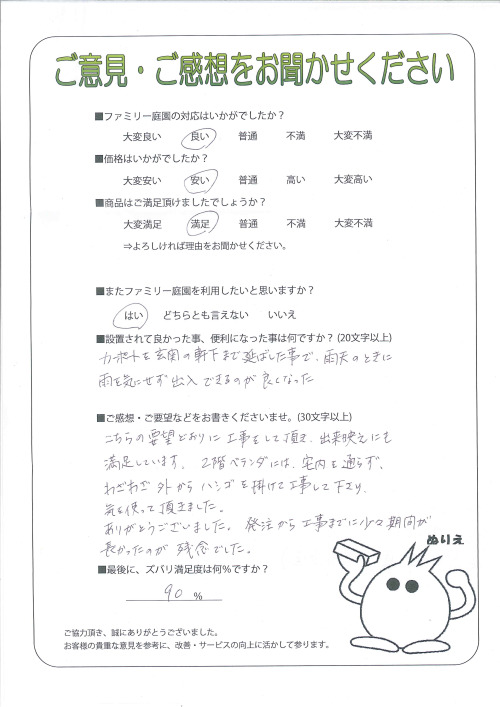 ご意見・ご感想をお聞かせください
■ファミリー庭園の対応はいかがでしたか？
大変良い 良い 普通 不満 大変不満
■価格はいかがでしたか？
大変安い 安い 普通 高い 大変高い
■商品はご満足頂けましたでしょうか？
大変満足 満足 普通 不満 大変不満
⇒よろしければ理由をお聞かせください。
■またファミリー庭園を利用したいと思いますか？
はい どちらとも言えない いいえ
■設置されて良かった事、便利になった事は何ですか？(20文字以上)
カーポートを玄関の軒下まで延ばした事で、雨天のときに
雨を気にせず出入できるのが良くなった
■ご感想・ご要望などをお書きくださいませ。(30文字以上)
こちらの要望どおりに工事をして頂き、出来映えにも
満足しています。2階ベランダには、宅内を通らず、
わざわざ外からハシゴを掛けて工事して下さり、
気を使って頂きました。
ありがとうございました。発注から工事までに少々期間が
長かったのが残念でした。
ぬりえ
■最後に、ズバリ満足度は何％ですか？
90 %
ご協力頂き、誠にありがとうございました。
お客様の貴重な意見を参考に、改善・サービスの向上に活かして参ります。